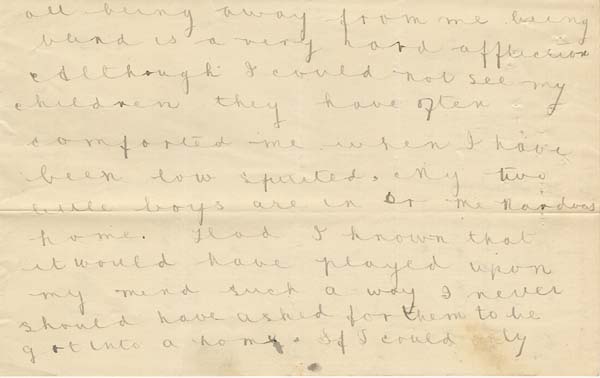 all being away from me being
blind is a very hard affliction
Although I could not see my
children they have often
comforted me when I have
been low spirited. My two
little boys are in Dr Mc Nardvas
home. Had I known that
it would have played upon
my mind such a way I never
should have asked for them to be
got into a home. If I could only